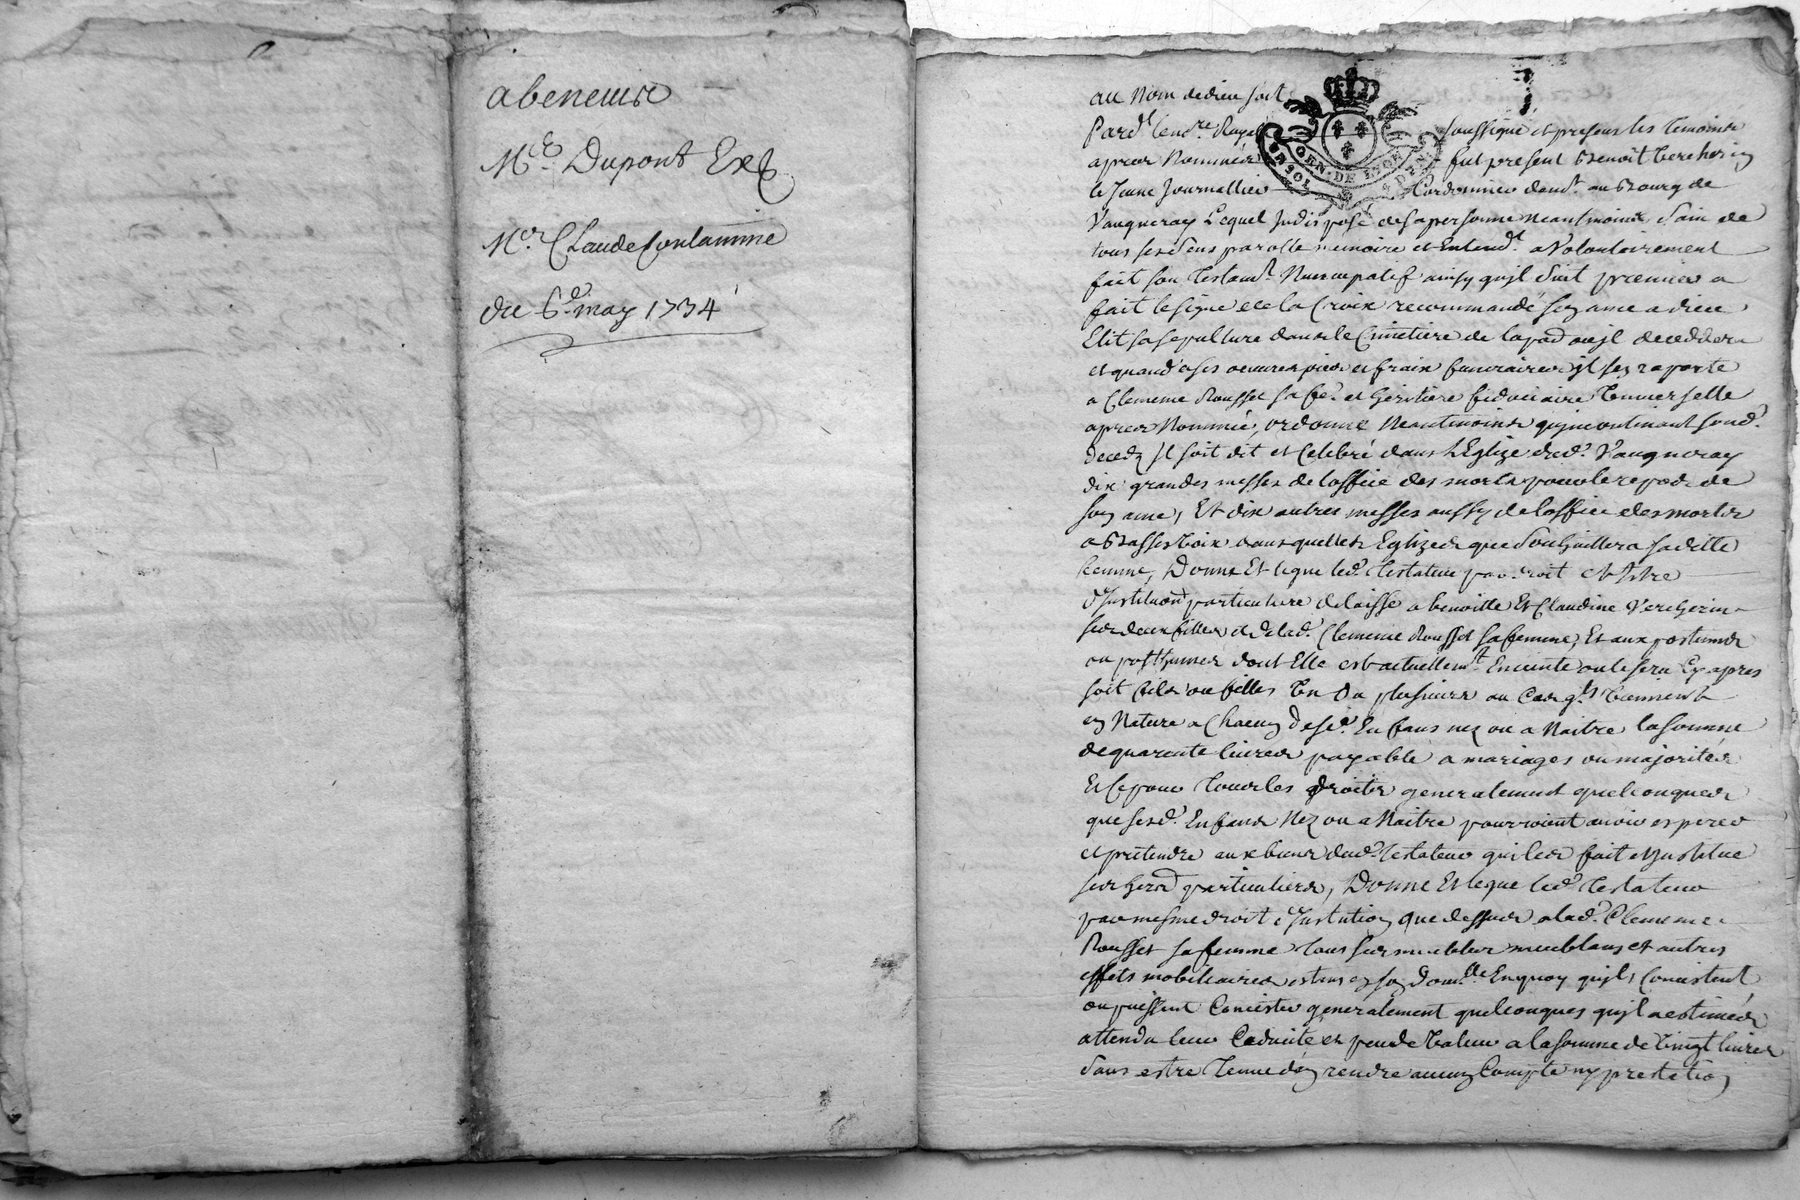 abenevis
Me. Dupont Ex
Mer Claude Contamine
du 6e. may 1734
au Nom de dieu soit
Pard.t le no.re Royal soussigné et presens les temoins
apres Nommés fut present Benoit Vercherin
le Jeune Journallier Cordonnier dem.t au Bourg de
Vaugneray Lequel Indisposé de sa personne neantmoins sain de
tous ses sens parolle memoire et Entend.t a Volontairement
fait son Testam.t Nuncupatif ainsy quil suit premier a
fait le signe de la Croix recommandé son ame a dieu
Elit sa sepulture dans le Cimetiere de la par. ou jl deceddera
et quand a ses oeuvres pies et fraix funeraires jl sen raporte
a Clemence Rousset sa fe. et heritiere fiduciaire Vniverselle
apres Nommée, ordonne Neantmoins qu'incontinant son d.
deced jl soit dit et Celebré dans L'Eglize dud. Vaugneray
dix grandes messes de l'office des morts pour le repos de
son ame, Et dix autres messes aussy de l'office des morts
a Basse Voix dans quelles Eglizes que souhaittera sa ditte
femme, Donne Et legue led. Testateur par droit et titre
d'Institu.on particuliere delaisse a benoitte Et Claudine Vercherin
ses deux filles et de lad. Clemence Rousset sa femme, Et aux postumes
ou posthumes dont Elle est actuellem.t Enceinte ou le sera Cy apres
soit fils ou filles Vn ou plusieurs au Cas q.ls Viennent
en Nature a Chacun de sesd. Enfans nez ou a Naitre la somme
de quarente livres payable a mariages ou majorités
Et Ce pour tous les droits generalement quelconques
que sesd. Enfans Nez ou a Naitre pourroient avoir esperer
et pretendre aux biens dud. Testateur qui les fait et Institue
ses her. particuliers, Donne Et legue led. Testateur
par mesme droit d'Institution que dessus a lad. Clemence
Rousset sa femme tous ses meubles meublans et autres
effets mobiliaires estans en son dom.lle En quoy quils Concistent
ou puissent Concister generalement quelconques quil a estimés
attendu leur Caducité et peu de Valeur a la somme de Vingt livres
sans estre Tenue d'en rendre aucun Compte ny prestation